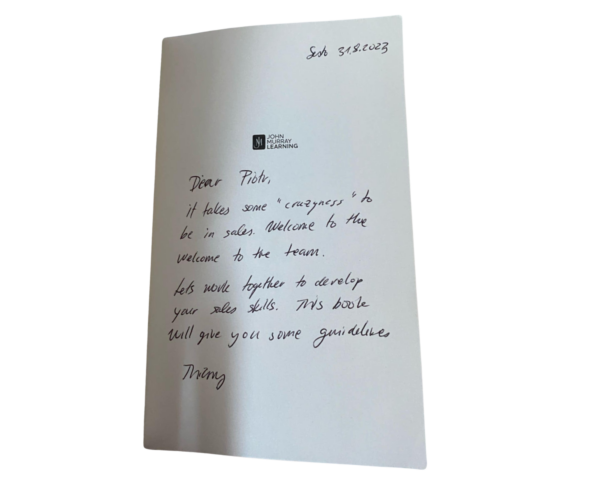 Sesto 31.8.2023
JM
JOHN
MURRAY
LEARNING
Dear Piotr,
it takes some "crazyness" to
be in sales. Welcome to the
welcome to the team.
Lets work together to develop
your sales skills. This book
will give you some guidelines